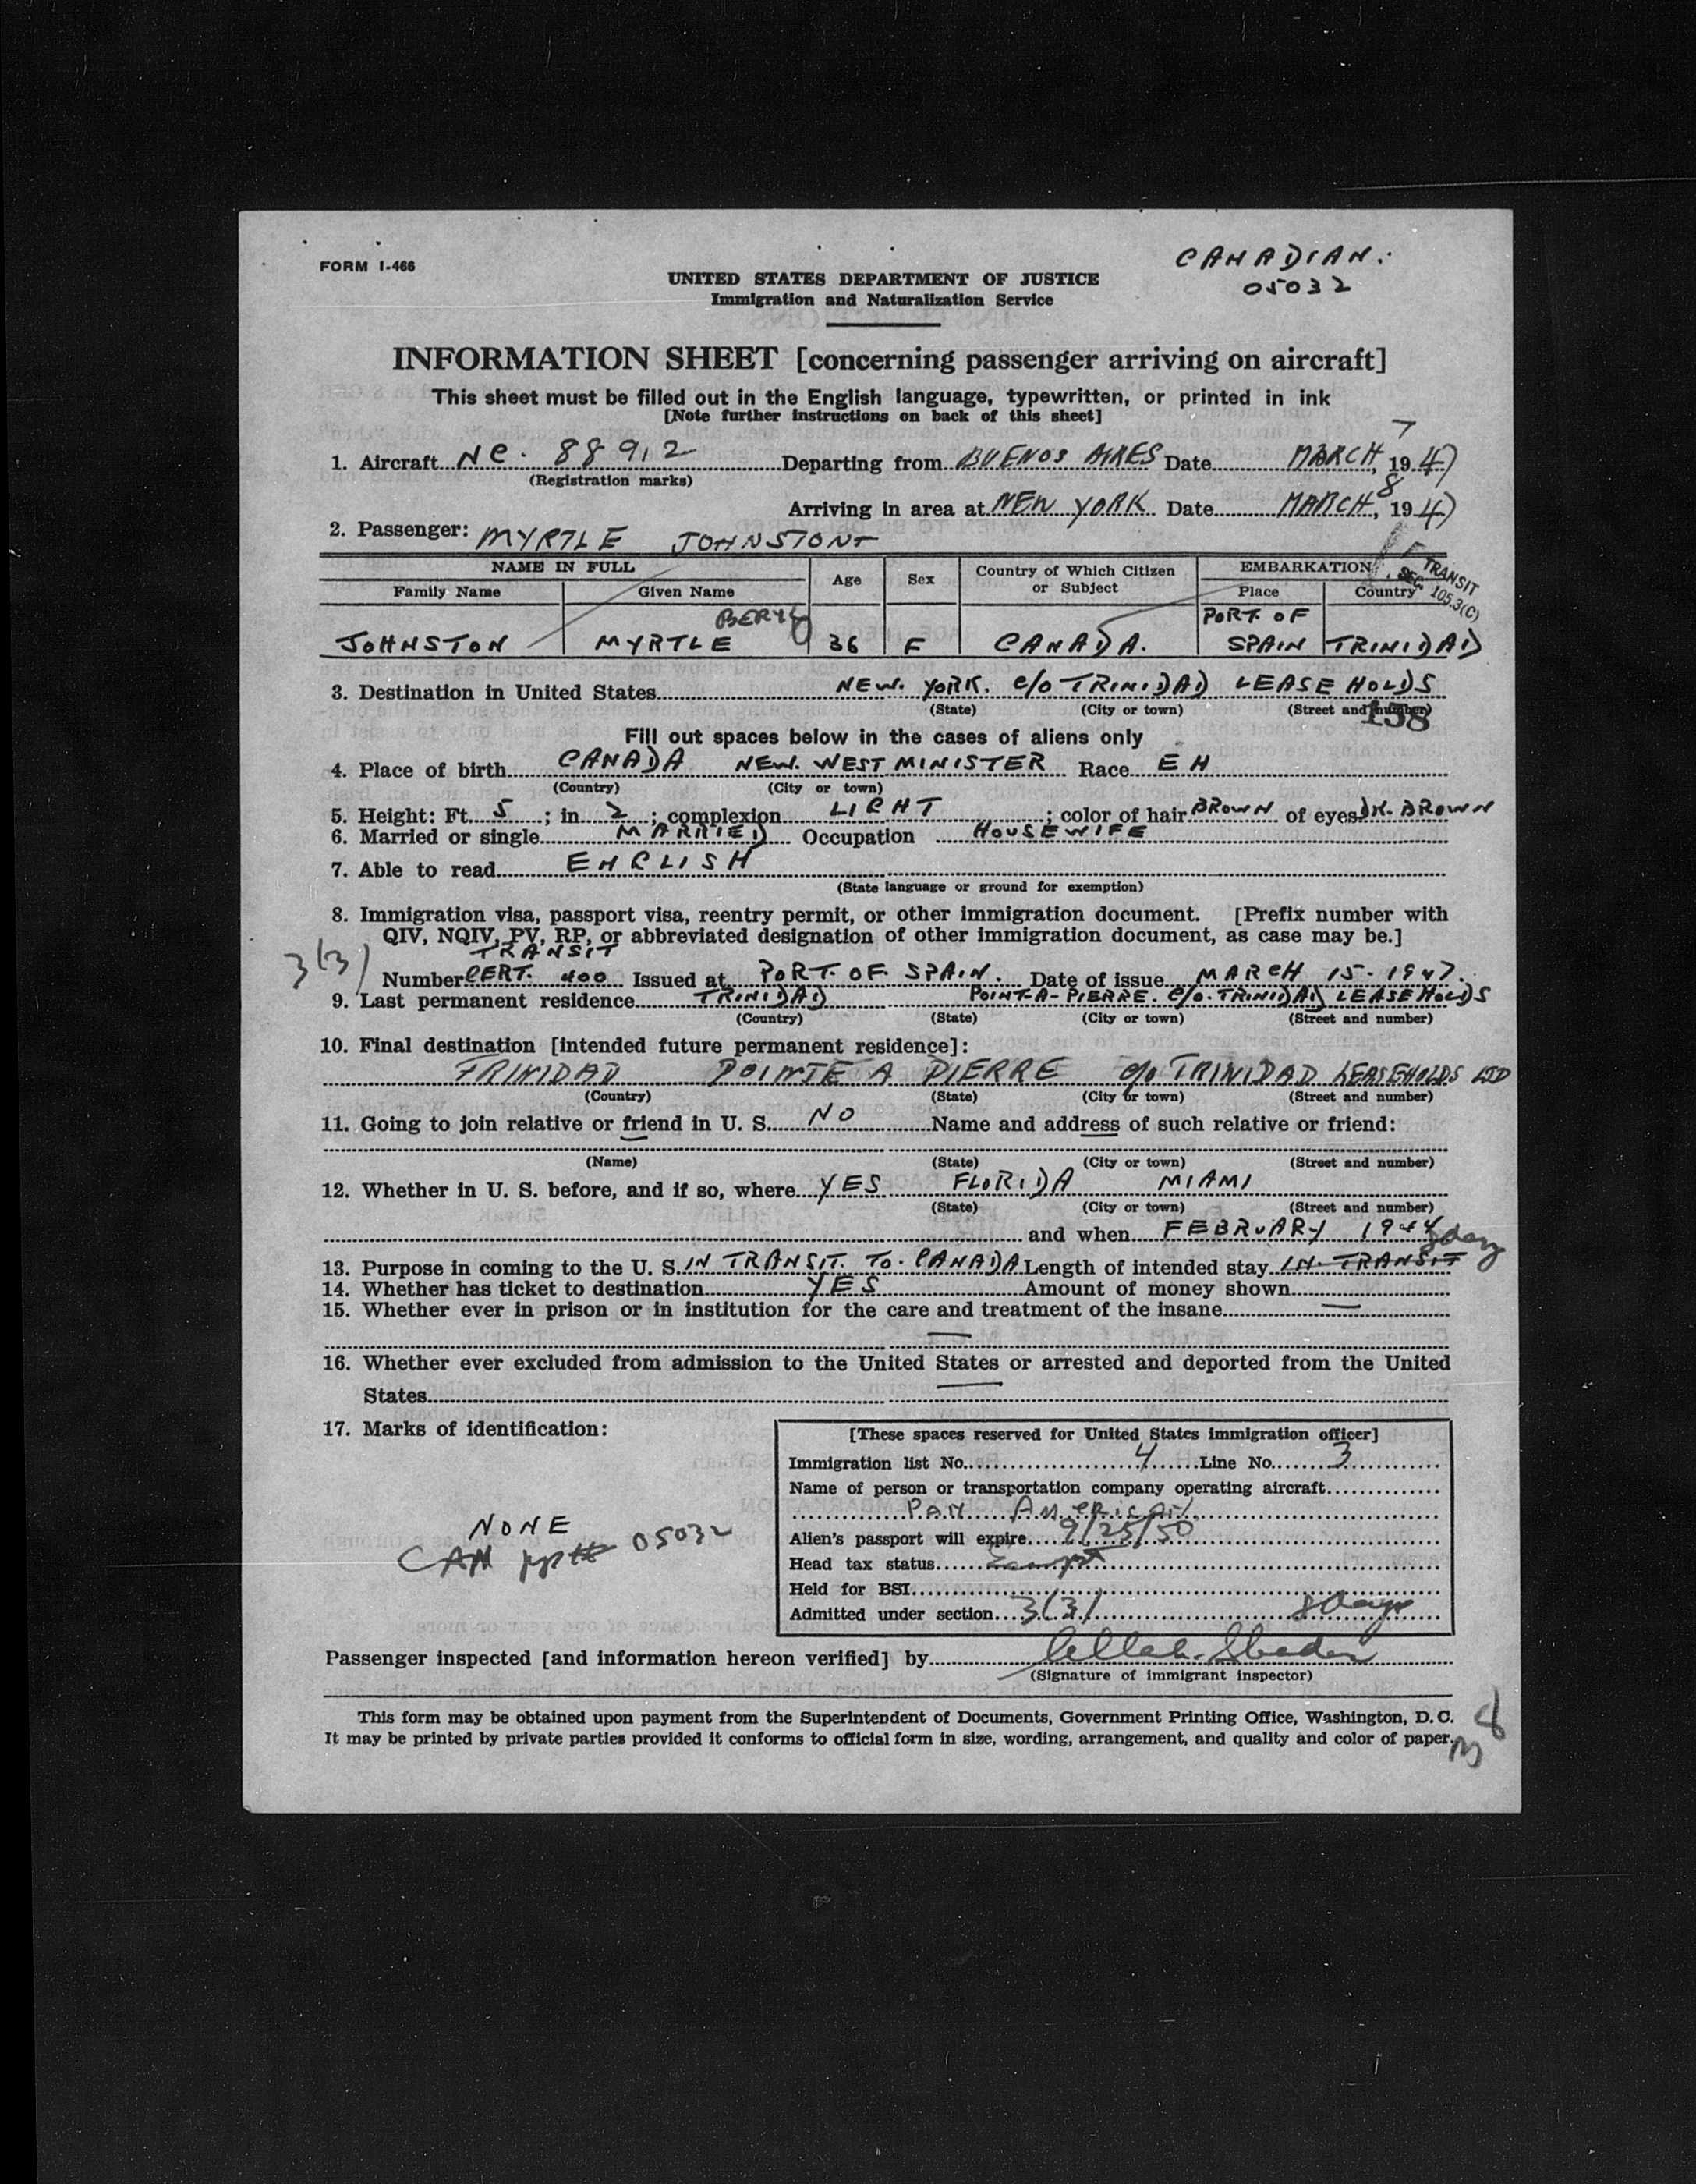 FORM I-466
CANADIAN.
05032
UNITED STATES DEPARTMENT OF JUSTICE
Immigration and Naturalization Service
INFORMATION SHEET [concerning passenger arriving on aircraft]
This sheet must be filled out in the English language, typewritten, or printed in ink
[Note further instructions on back of this sheet]
1. Aircraft NC. 88912 Departing from BUENOS AIRES Date MARCH 7, 1947
(Registration marks)
Arriving in area at NEW YORK Date MARCH 8, 1947
2. Passenger: MYRTLE JOHNSTON
NAME IN FULL Age Sex Country of Which Citizen or Subject EMBARKATION
TRANSIT
SEC. 105.3(C)
Family Name Given Name Place Country
BERYL PORT OF
JOHNSTON MYRTLE 36 F CANADA. SPAIN TRINIDAD
3. Destination in United States NEW. YORK. C/O TRINIDAD LEASE HOLDS
(State) (City or town) (Street and number)
158
Fill out spaces below in the cases of aliens only
4. Place of birth CANADA NEW. WESTMINISTER Race EH
(Country) (City or town)
5. Height: Ft. 5; in. 2; complexion LIGHT; color of hair BROWN of eyes DK. BROWN
6. Married or single MARRIED Occupation HOUSEWIFE
7. Able to read ENGLISH
(State language or ground for exemption)
8. Immigration visa, passport visa, reentry permit, or other immigration document. [Prefix number with
QIV, NQIV, PV, RP, or abbreviated designation of other immigration document, as case may be.]
3(3) TRANSIT
Number CERT. 400 Issued at PORT. OF. SPAIN. Date of issue MARCH 15. 1947.
9. Last permanent residence TRINIDAD POINT-A-PIERRE. C/O. TRINIDAD LEASEHOLDS
(Country) (State) (City or town) (Street and number)
10. Final destination [intended future permanent residence]:
TRINIDAD POINTE A PIERRE c/o TRINIDAD LEASEHOLDS LTD
(Country) (State) (City or town) (Street and number)
11. Going to join relative or friend in U. S. NO Name and address of such relative or friend:
(Name) (State) (City or town) (Street and number)
12. Whether in U. S. before, and if so, where YES FLORIDA MIAMI
(State) (City or town) (Street and number)
and when FEBRUARY 1944
13. Purpose in coming to the U. S. IN TRANSIT. TO. CANADA Length of intended stay IN. TRANSIT 8 days
14. Whether has ticket to destination YES Amount of money shown
15. Whether ever in prison or in institution for the care and treatment of the insane —
—
16. Whether ever excluded from admission to the United States or arrested and deported from the United
States —
17. Marks of identification:
NONE
CAN ppt# 05032
[These spaces reserved for United States immigration officer]
Immigration list No. 4 Line No. 3
Name of person or transportation company operating aircraft
Pan American
Alien's passport will expire 9/25/50
Head tax status Exempt
Held for BSI
Admitted under section 3(3) 8 days
Passenger inspected [and information hereon verified] by
(Signature of immigrant inspector)
This form may be obtained upon payment from the Superintendent of Documents, Government Printing Office, Washington, D. C.
It may be printed by private parties provided it conforms to official form in size, wording, arrangement, and quality and color of paper.